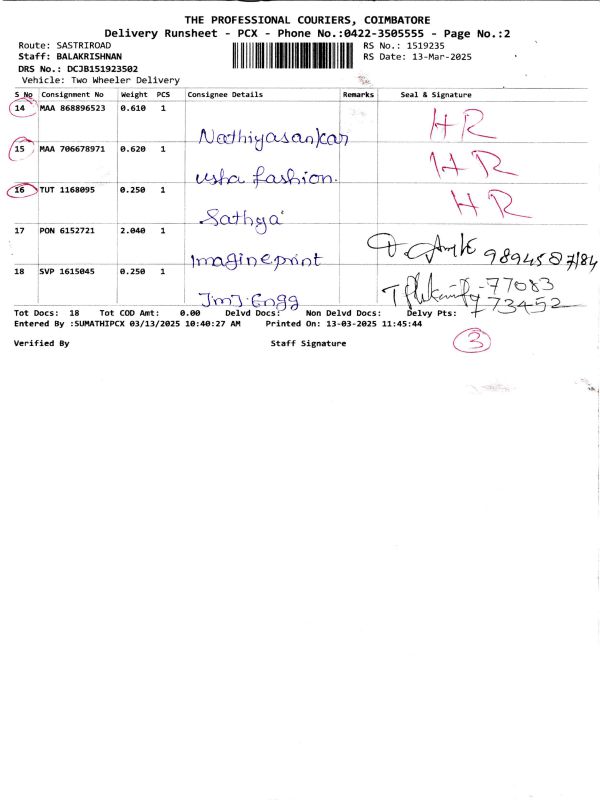 THE PROFESSIONAL COURIERS, COIMBATORE
Delivery Runsheet - PCX - Phone No.:0422-3505555 - Page No.:2
Route: SASTRIROAD RS No.: 1519235
Staff: BALAKRISHNAN RS Date: 13-Mar-2025
DRS No.: DCJB151923502
Vehicle: Two Wheeler Delivery
S No Consignment No Weight PCS Consignee Details Remarks Seal & Signature
14 MAA 868896523 0.610 1 Nathiyasankar HR
15 MAA 706678971 0.620 1 Usha fashion. HR
16 TUT 1168095 0.250 1 Sathya HR
17 PON 6152721 2.040 1 Imagineprint
18 SVP 1615045 0.250 1 JMJ.Engg 77083
73452
Tot Docs: 18 Tot COD Amt: 0.00 Delvd Docs: Non Delvd Docs: Delvy Pts:
Entered By :SUMATHIPCX 03/13/2025 10:40:27 AM Printed On: 13-03-2025 11:45:44
Verified By Staff Signature
3